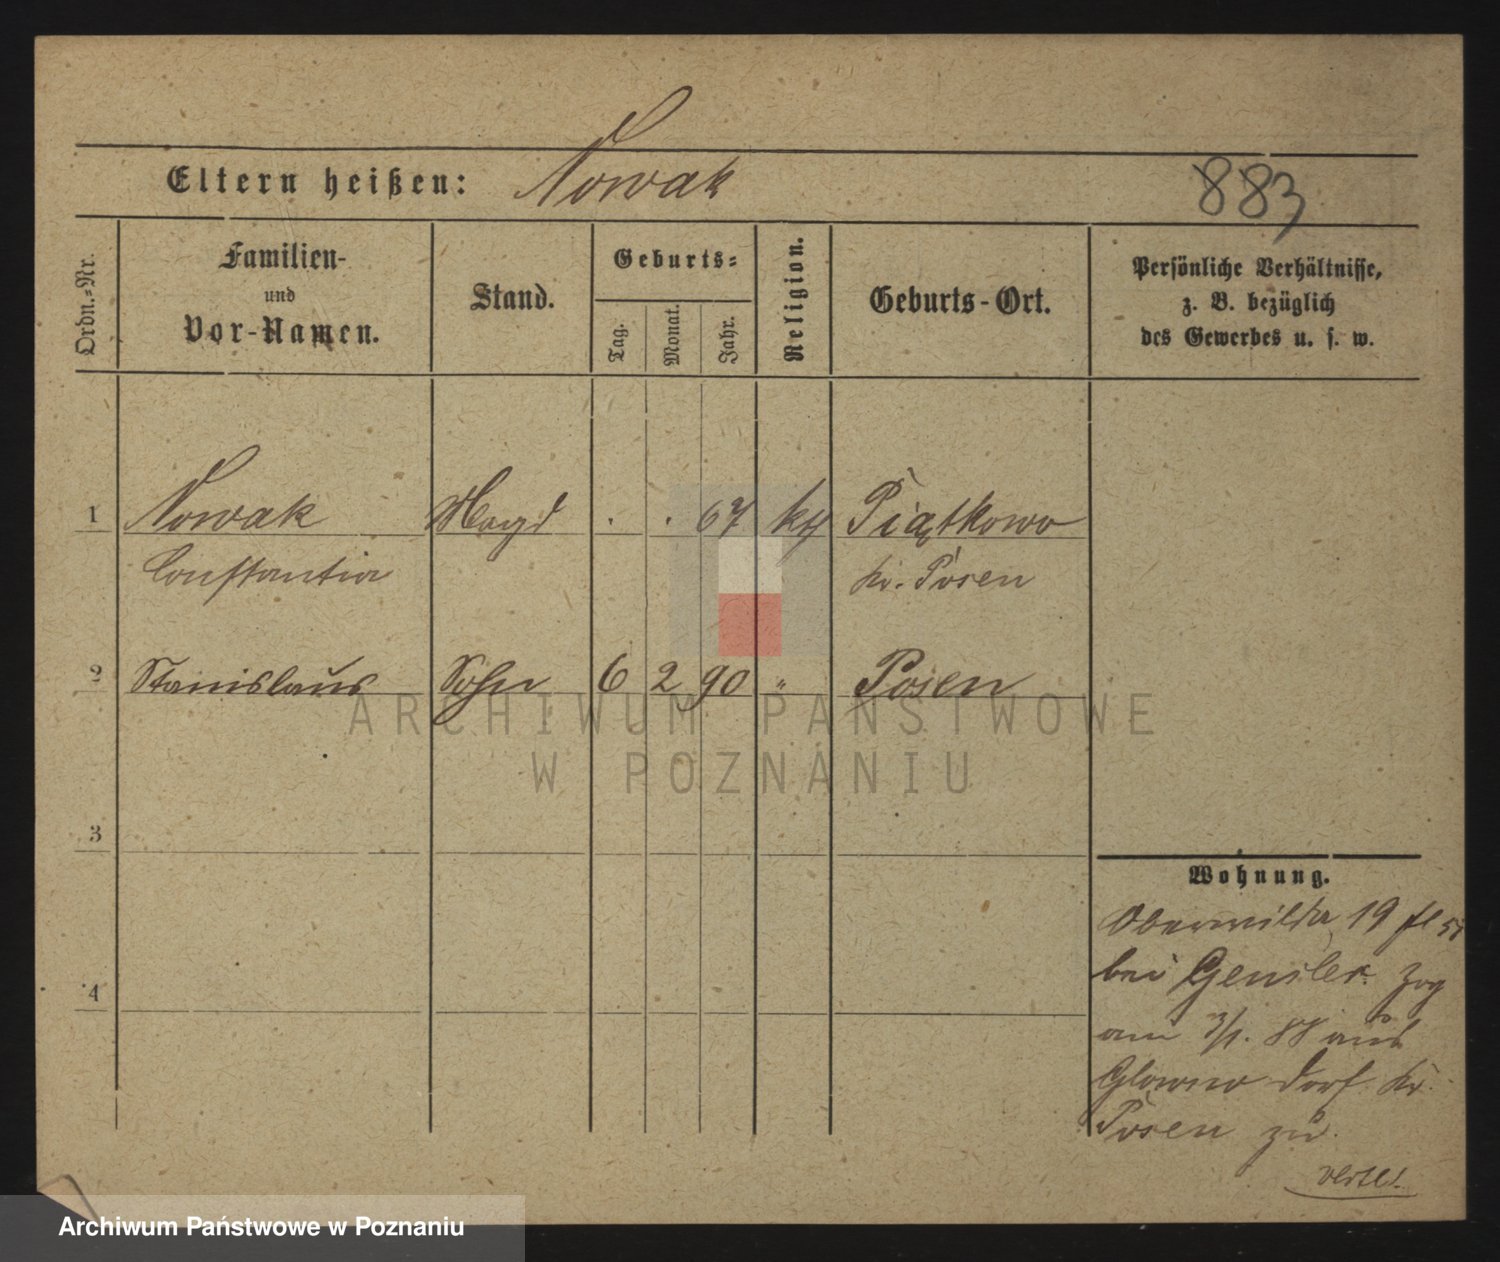 Eltern heißen: Nowak
883
Ordn.-Nr.
Familien-
und
Vor-Namen.
Stand.
Geburts-
Tag.
Monat.
Jahr.
Religion.
Geburts-Ort.
Persönliche Verhältnisse,
z. B. bezüglich
des Gewerbes u. s. w.
1 Nowak Magd . . 67 kth Piątkowo
Constantia Kr. Posen
2 Stanislaus Sohn 6 2 90 " Posen
3
4
Wohnung.
Oberwilda 19
bei Gensler. Zog
am 3/1. 88 aus
Glowno Dorf Kr.
Posen zu.
ARCHIWUM PAŃSTWOWE
W POZNANIU
Archiwum Państwowe w Poznaniu